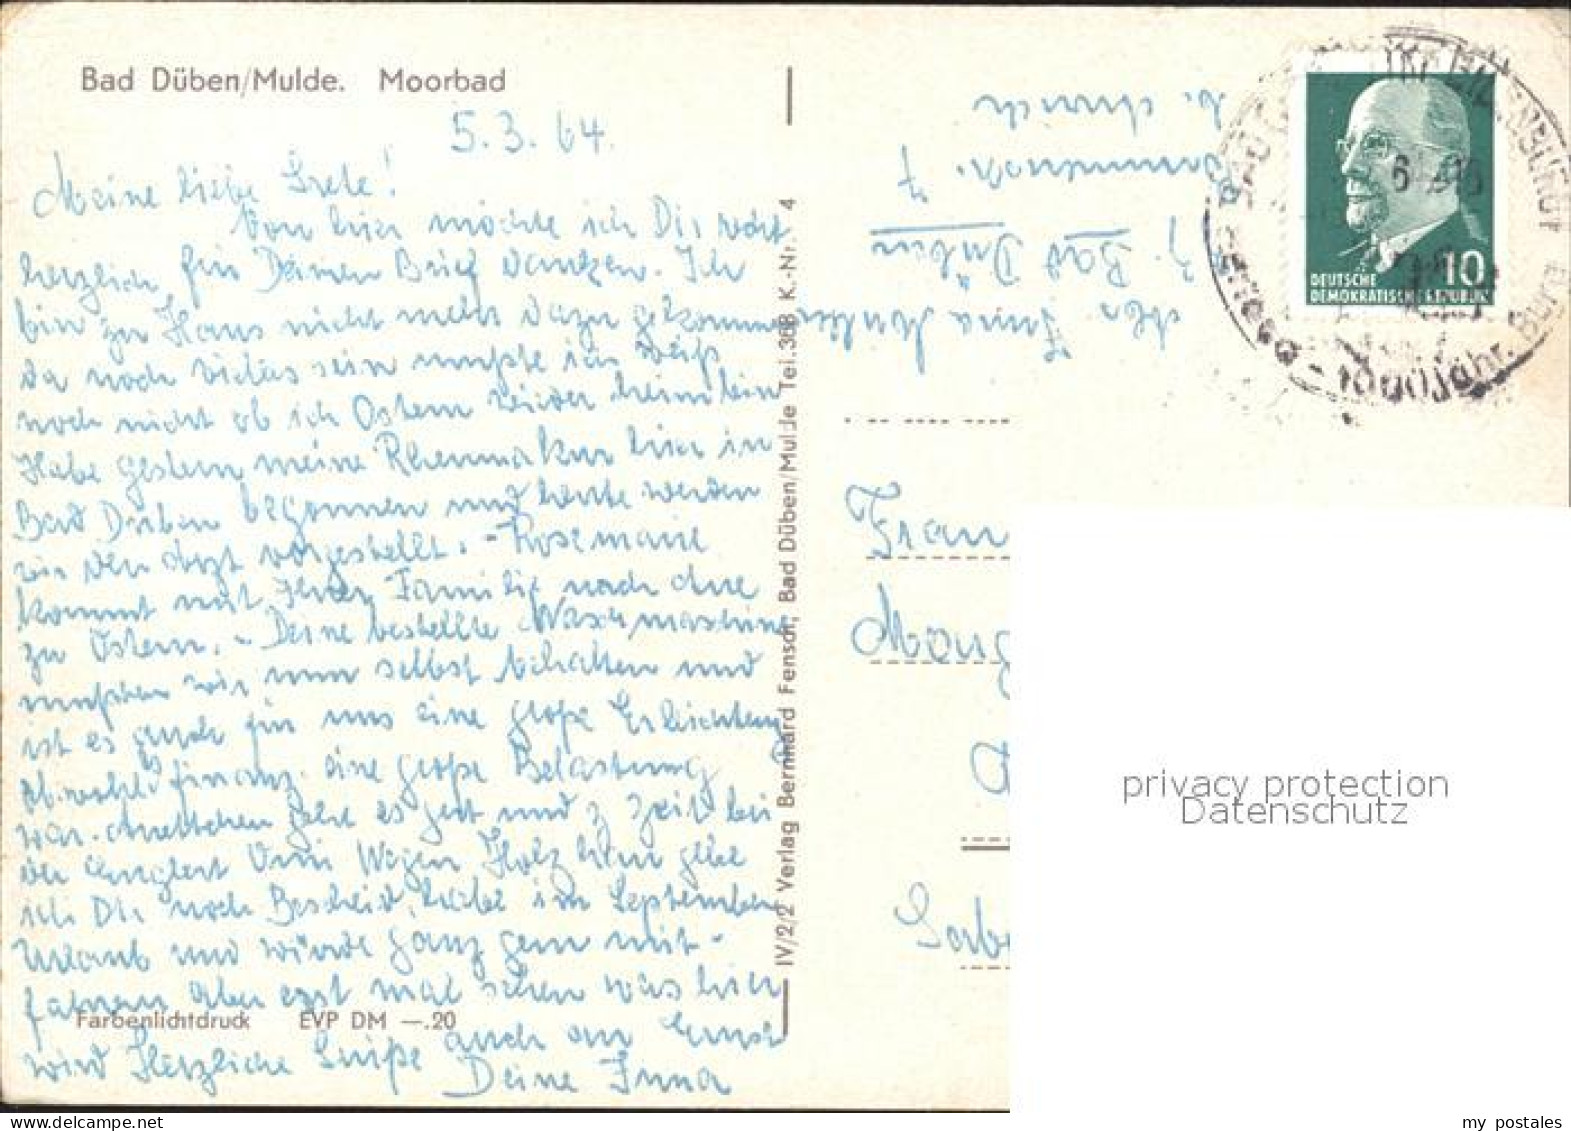 Bad Düben/Mulde. Moorbad
5.3.64.
Meine liebe Grete!
Von hier möchte ich Dir recht
herzlich für Deinen Brief danken. Ich
bin zu Haus nicht mehr dazu gekommen
da noch vieles sein mußte ich weiß
noch nicht ob ich Ostern wieder heim bin
Habe gestern meine Rheumakur hier in
Bad Düben begonnen und heute werden
wir dem Arzt vorgestellt. - Rosemarie
kommt mit Ihrer Familie nach
zu Ostern. - Deine bestellte Waschmaschine
mußten wir nun selbst behalten und
ist es auch für uns eine große Erleichterung
obwohl es finanz. eine große Belastung
war. Muttchen geht es gut und z. Zeit bei
Wegen Holz gebe
ich Dir noch Bescheid, habe im September
Urlaub und würde ganz gern mit-
fahren aber erst mal sehen was hier
wird Herzliche Grüße auch an Ernst
Deine Inna
Farbenlichtdruck EVP DM —.20
IV/2/2 Verlag Bernhard Fensch, Bad Düben/Mulde Tel. 368 K.-Nr. 4
Abs. Inna Müller
z. Bad Düben
7
b. Schmidt
DEUTSCHE
DEMOKRATISCHE REPUBLIK
10
BAD DÜBEN
EILENBURG
1000jähr. Burg
Frau
privacy protection
Datenschutz
my postales